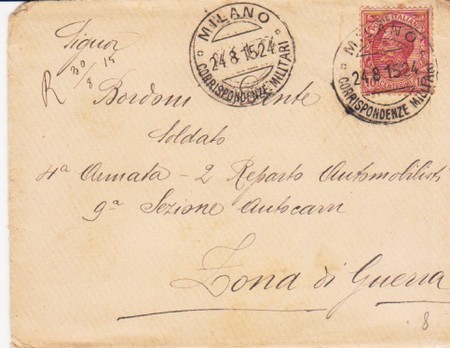 MILANO
24.8.15.24
CORRISPONDENZE MILITARI
MILANO
24.8.15.24
CORRISPONDENZE MILITARI
Signor
R 30/8 15
Bordoni
Soldato
4ª Armata - 2 Reparto Automobilisti
9ª Sezione Autocarri
Zona di Guerra
8